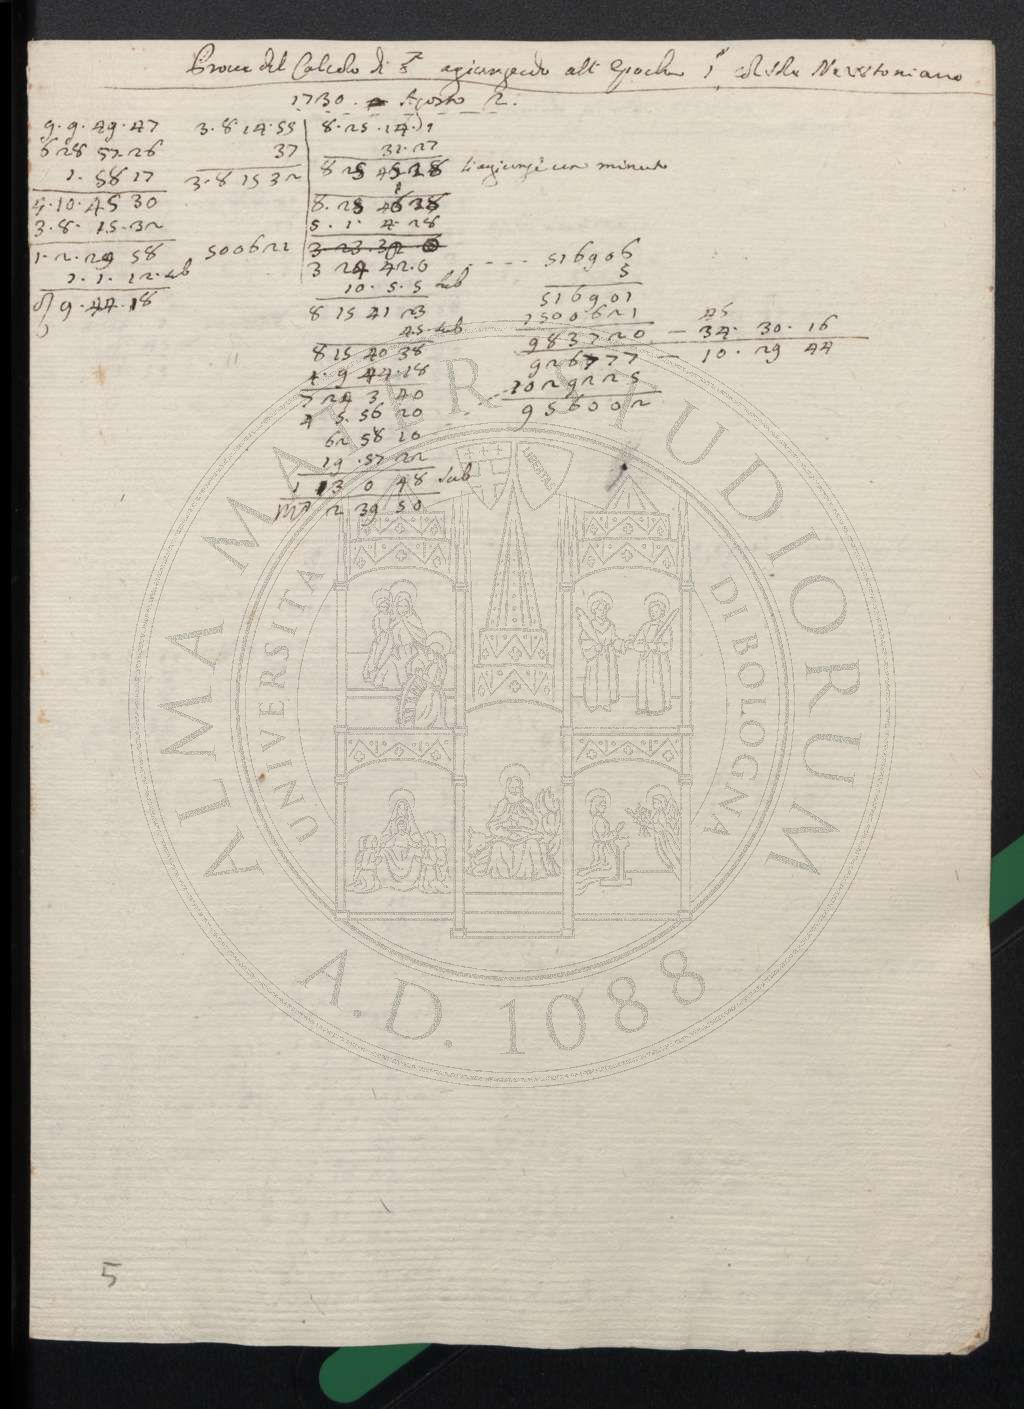 Prova del Calcolo di ♂ agiungendo all' Epocha 1' et della Newtoniano
1730. Agosto 2.
9. 9. 49. 47
6 28 57. 26
1. 58 17
4. 10. 45 30
3. 8. 15. 32
1. 2. 29 58
1. 1. 12. sub
9. 44. 18
3. 8 14. 55
37
3. 8 15 32
500621
8. 25. 14. 51
31. 27
8 25 45 18 li agiunge un minuto
8. 25 46 18
5. 1. 4. 28
3 24 42. 0
10. 5. 5 sub
8 15 41 23
45. sub
8 15 40 38
4. 9 44. 18
7 24 3 40
4 5. 56 20
62 58 10
19. 57 22
1 13 0 48 sub
2 39 50
516906
5
516901
1500621
983720 — 34. 30. 16
45
926777 — 10. 29 44
1029225
956002
5
ALMA MATER STUDIORUM
UNIVERSITÀ DI BOLOGNA
LIBERTAS
A.D. 1088